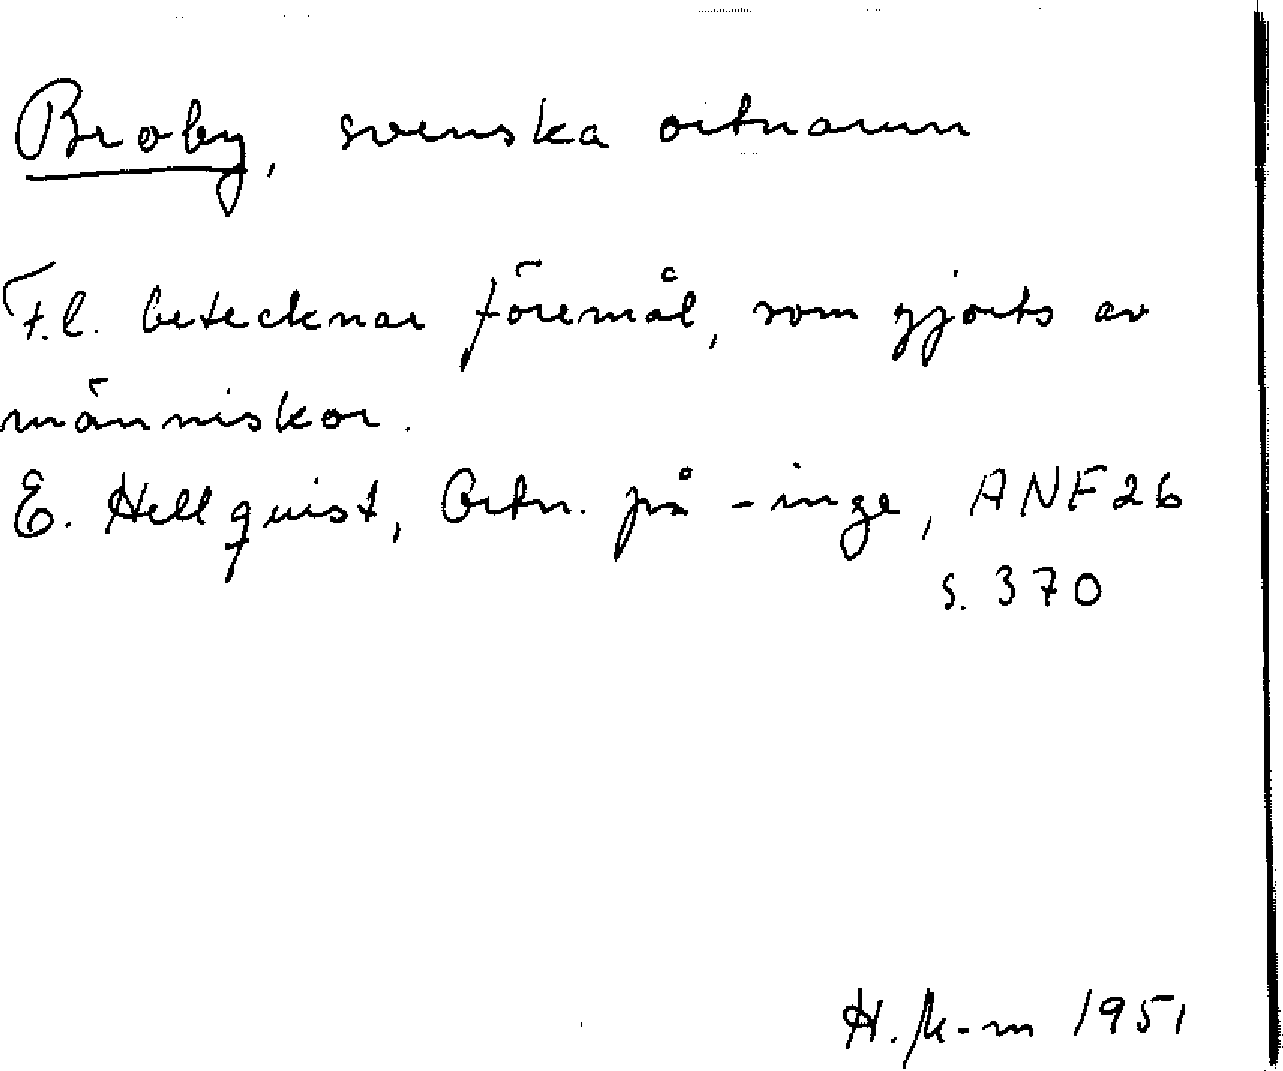 Broby, svenska ortnamn
F.l. betecknar föremål, som gjorts av
människor.
E. Hellquist, Ortn. på -inge, ANF 26
s. 370
H. 1951